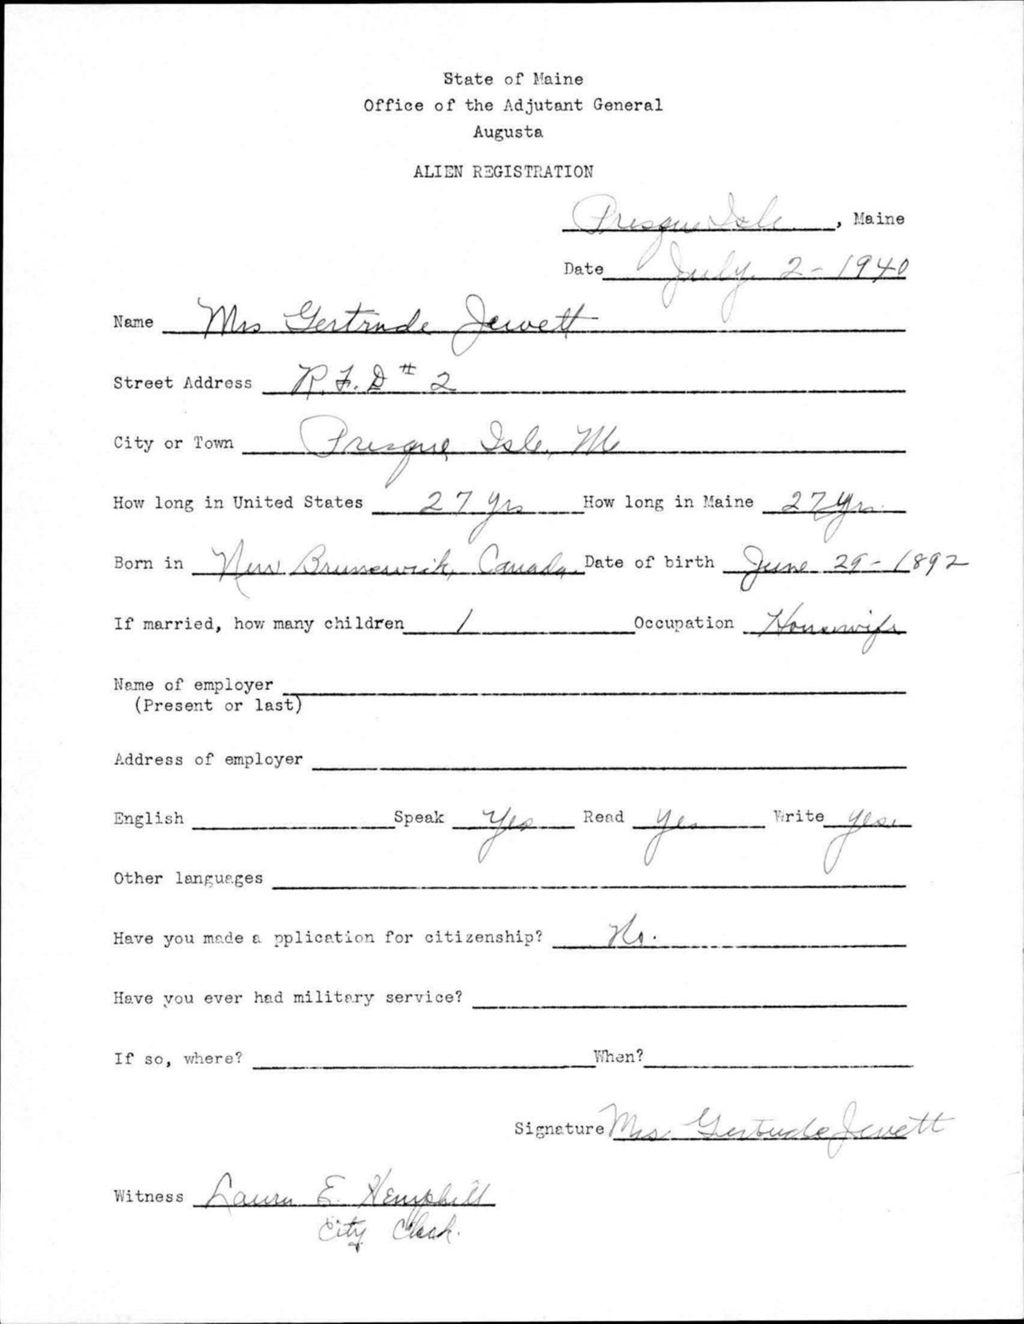 State of Maine
Office of the Adjutant General
Augusta
ALIEN REGISTRATION
Presque Isle, Maine
Date July 2-1940
Name Mrs Gertrude Jewett
Street Address R.F.D # 2
City or Town Presque Isle, Me
How long in United States 27 Yrs How long in Maine 27 Yrs.
Born in New Brunswick, Canada. Date of birth June 29-1892
If married, how many children 1 Occupation Housewife
Name of employer
(Present or last)
Address of employer
English Speak Yes Read Yes Write Yes.
Other languages
Have you made a pplication for citizenship? No.
Have you ever had military service?
If so, where? When?
Signature Mrs. Gertrude Jewett
Witness Laura E. Hemphill
City Clerk.